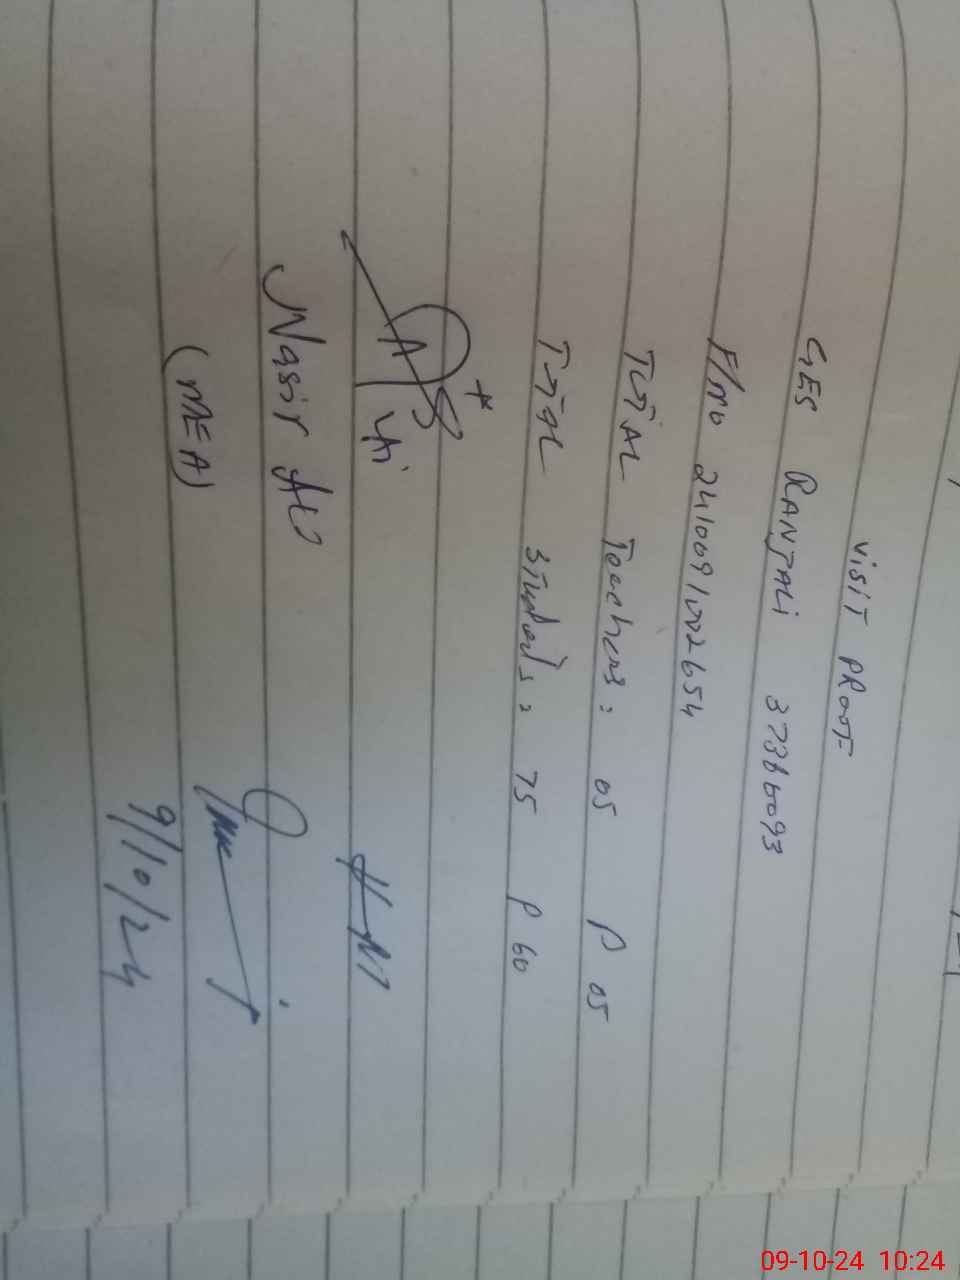 VISIT PROOF
GES RANJALI 37360093
F/no 2410091002654
TOTAL Teachers: 05 P 05
TOTAL Students: 75 P 60
Nasir Ali
(MEA)
9/10/24
09-10-24 10:24